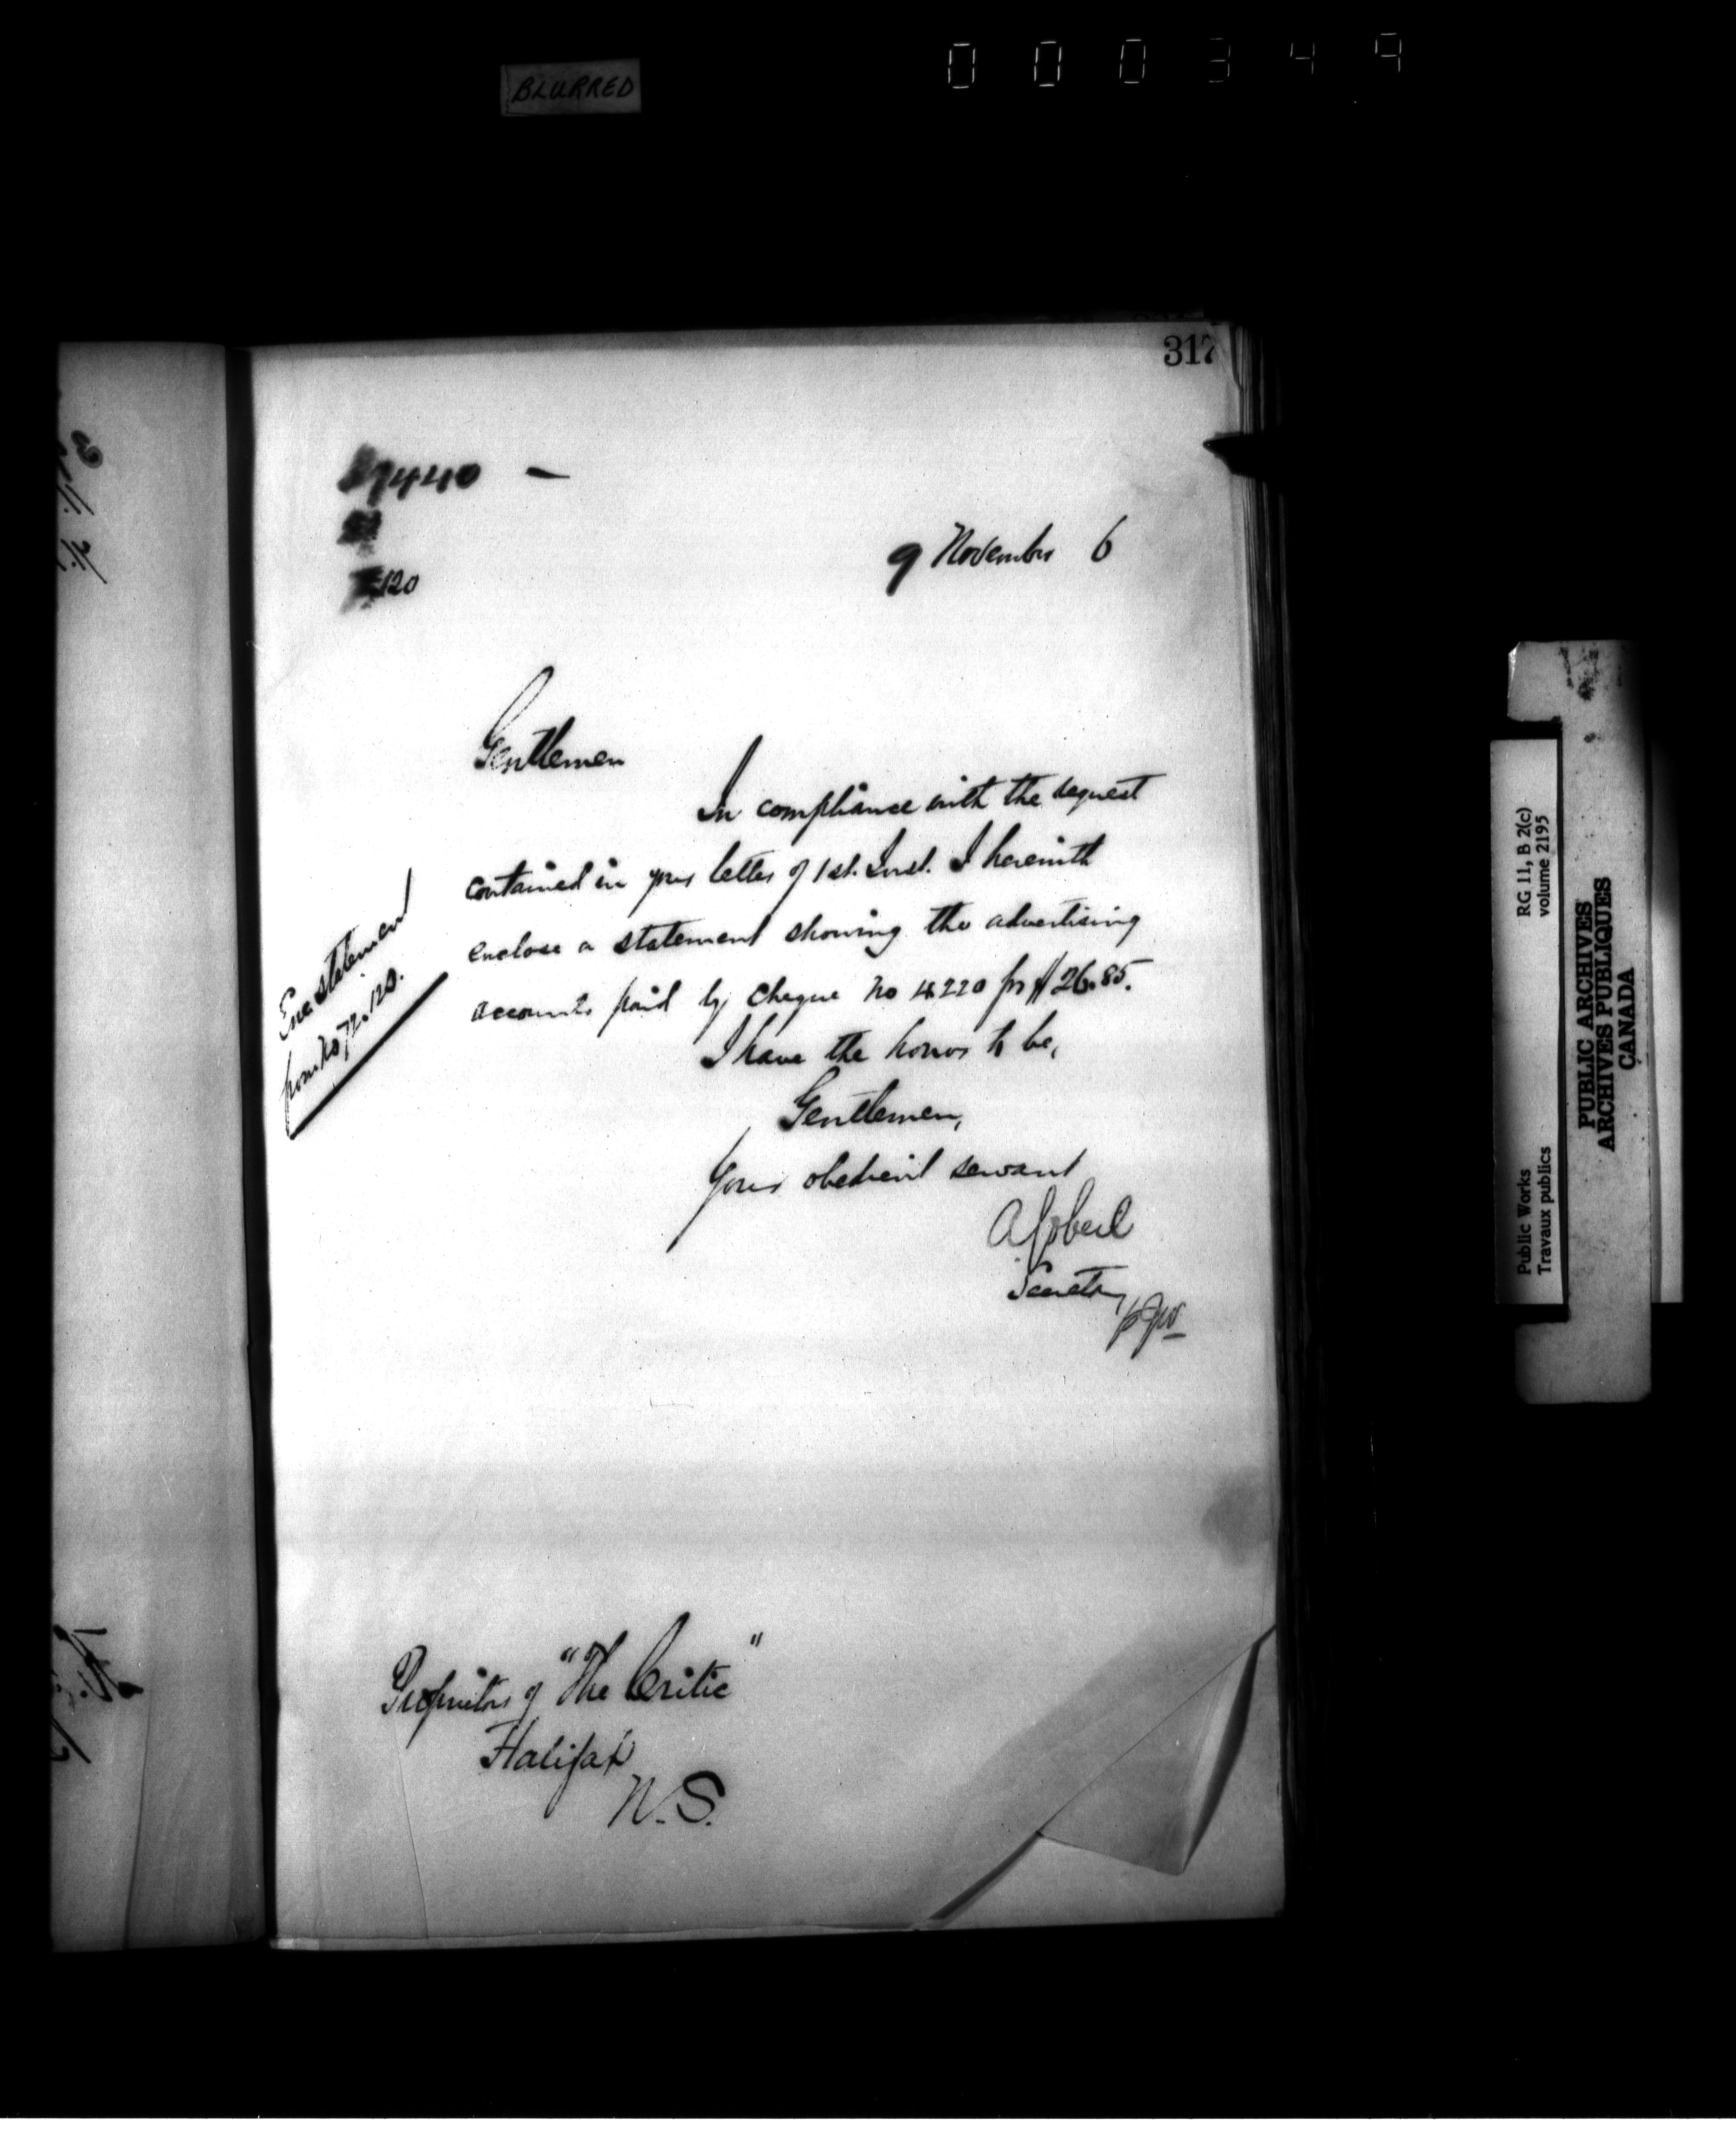 BLURRED
000349
317
7440 —
120
9 November 6
Gentlemen
In compliance with the request
contained in your letter of 1st. Inst. I herewith
enclose a statement showing the advertising
accounts paid by Cheque No 4220 for $26.85.
I have the honor to be,
Gentlemen,
Your obedient servant
A Gobeil
Secretary
Enc. statement
from No 77.120.
Proprietors of "The Critic"
Halifax
N.S.
RG 11, B 2(c)
volume 2195
Public Works
Travaux publics
PUBLIC ARCHIVES
ARCHIVES PUBLIQUES
CANADA